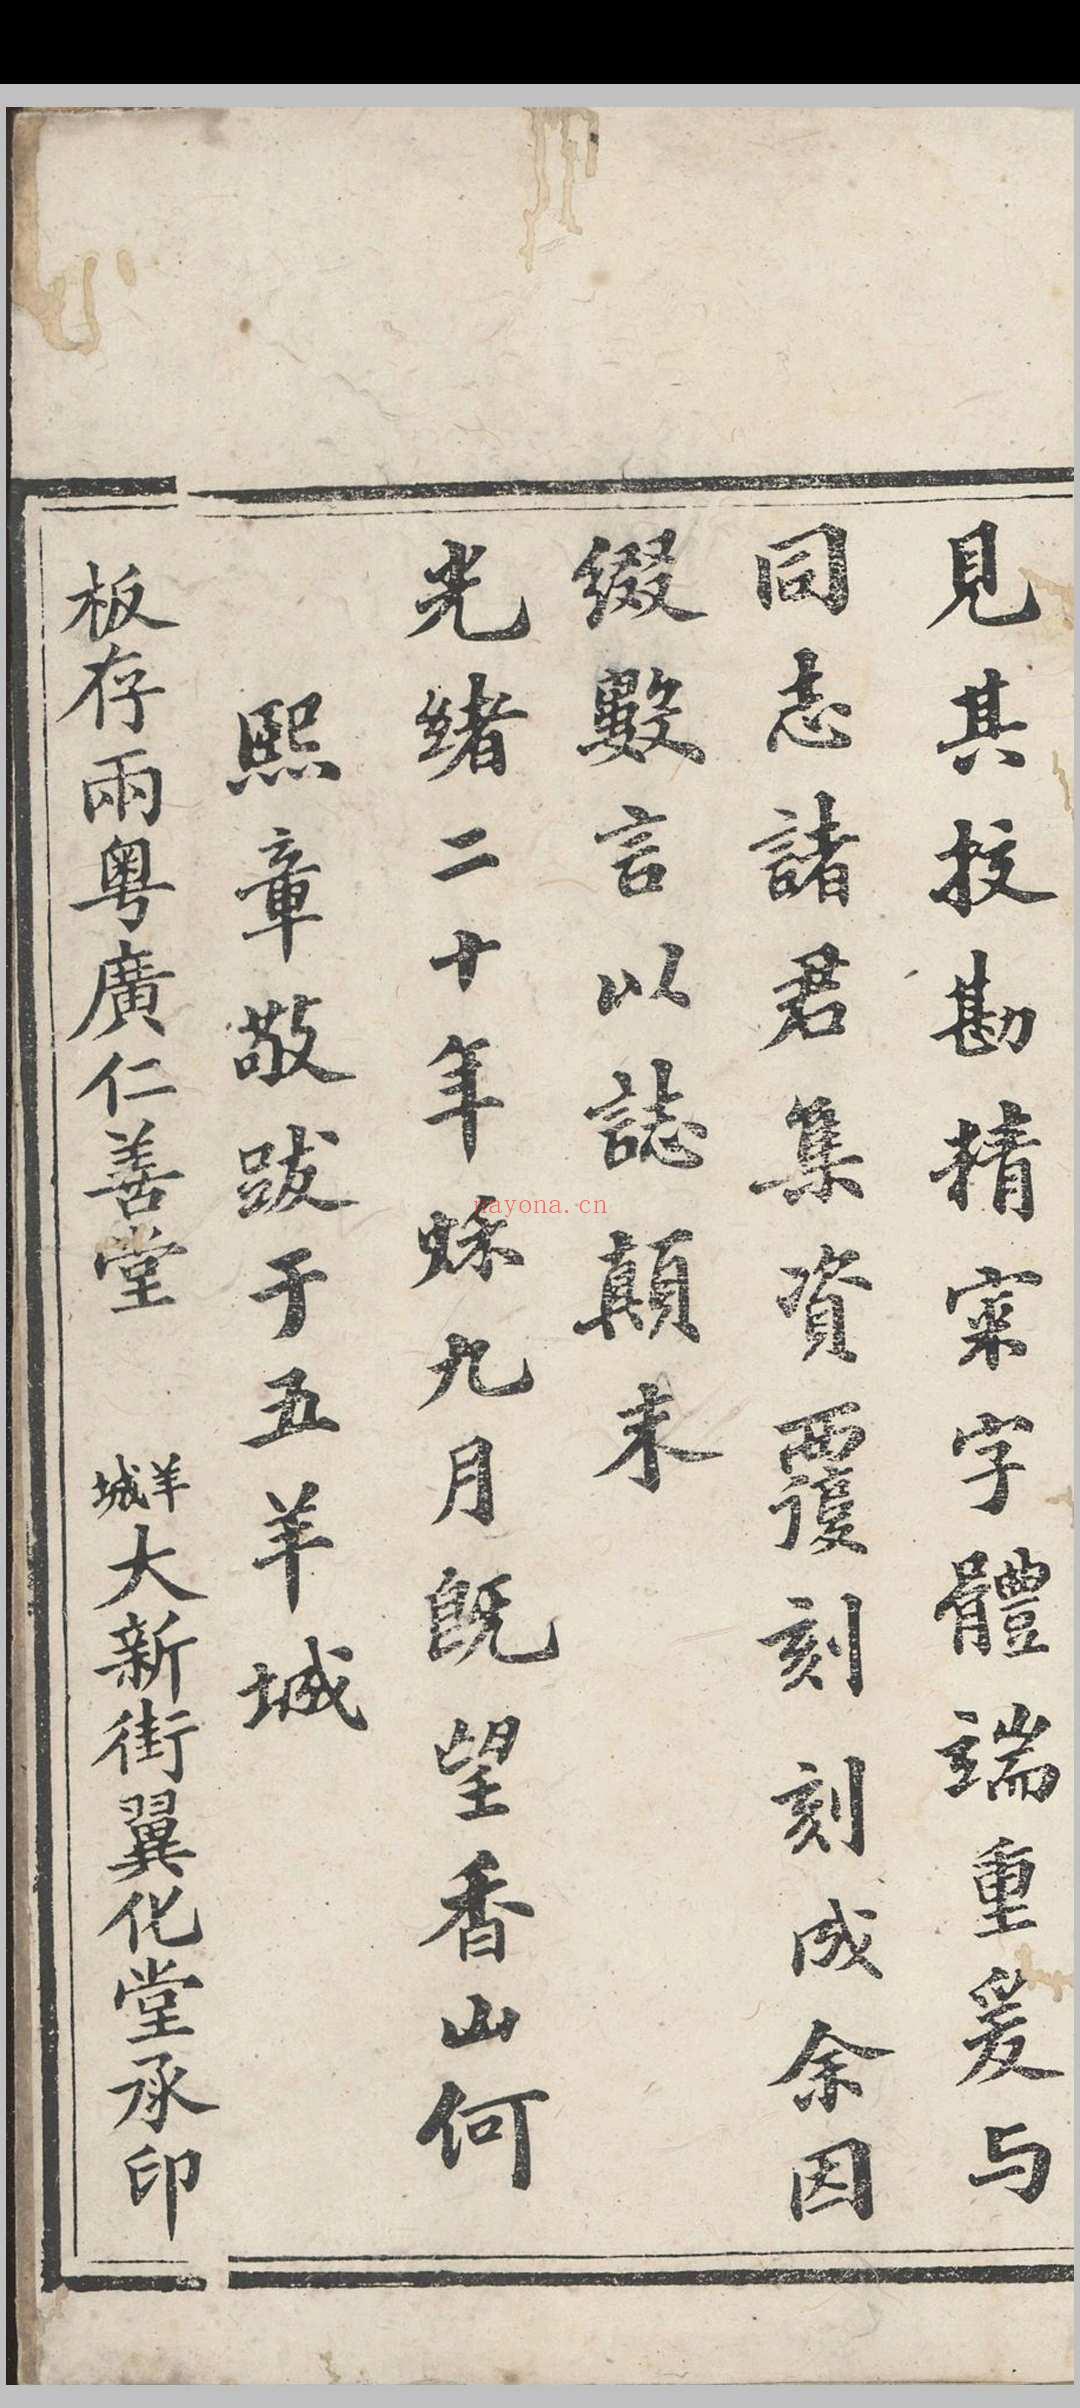 見其挍勘精寀字體端重爰与
同志諸君集資覆刻刻成余因
綴數言以誌顛末
光緒二十年秌九月既望香山何
熙章敬跋于五羊城
板存兩粵廣仁善堂
羊城大新街翼化堂承印
nayona.cn